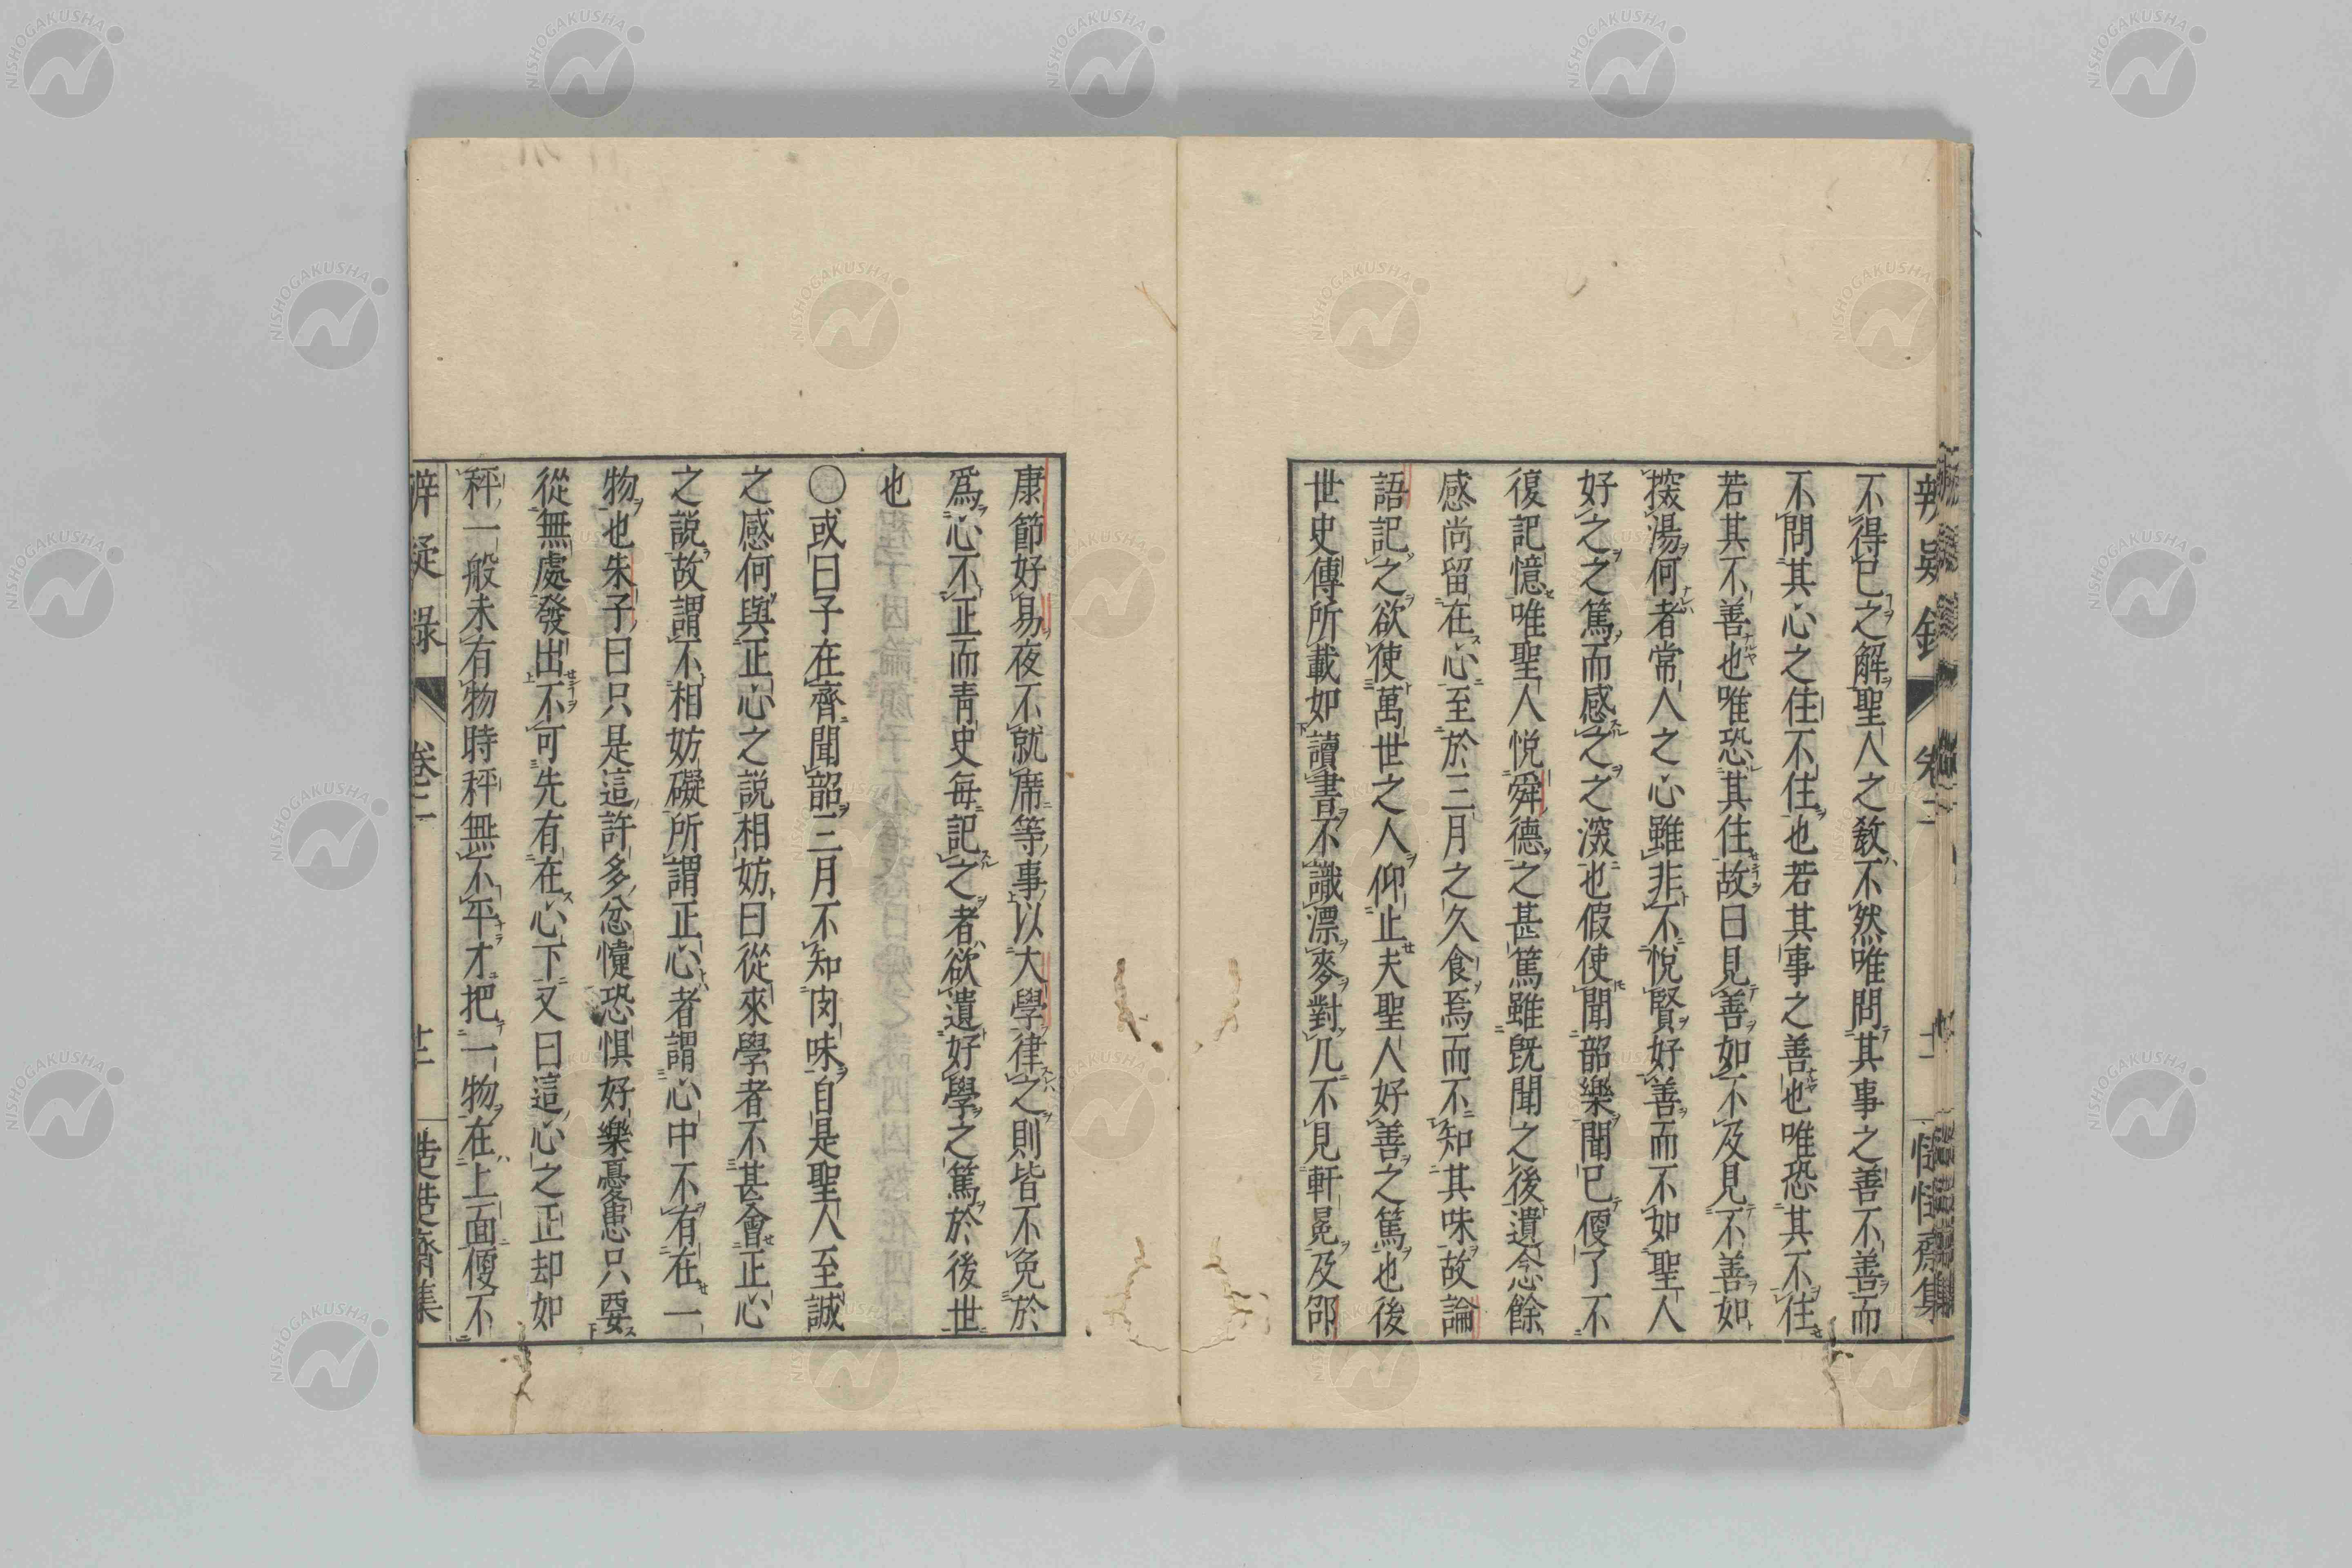 不得已之解聖人之敎不然唯問其事之善不善而
不問其心之住不住也若其事之善也唯恐其不住
若其不善也唯恐其住故曰見善如不及見不善如
探湯何者常人之心雖非不悅賢好善而不如聖人
好之之篤而感之之深也假使聞韶樂聞已便了不
復記憶唯聖人悅舜德之甚篤雖旣聞之後遺念餘
感尚留在心至於三月之久食焉而不知其味故論
語記之欲使萬世之人仰止夫聖人好善之篤也後
世史傳所載如讀書不識漂麥對几不見軒冕及邵
康節好易夜不就席等事以大學律之則皆不免於
爲心不正而靑史每記之者欲遺好學之篤於後世
也
〇或曰子在齊聞韶三月不知肉味自是聖人至誠
之感何與正心之説相妨曰從來學者不甚會正心
之説故謂不相妨礙所謂正心者謂心中不有在一
物也朱子曰只是這許多忿懥恐懼好樂憂患只要
從無處發出不可先有在心下又曰這心之正却如
秤一般未有物時秤無不平才把一物在上面便不
辨疑録 卷三 十二 慥慥齋集